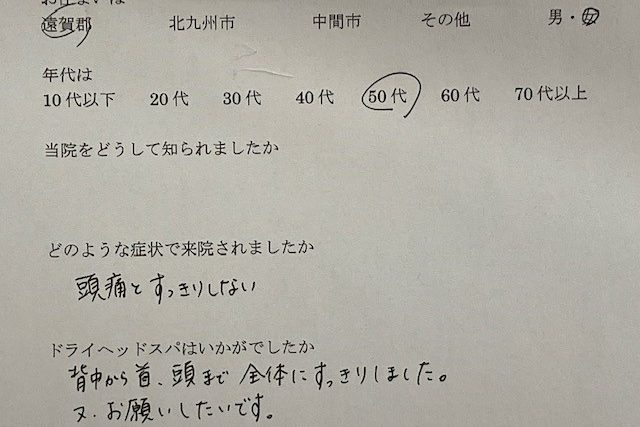 お住まいは
遠賀郡 北九州市 中間市 その他 男・女
年代は
10代以下 20代 30代 40代 50代 60代 70代以上
当院をどうして知られましたか
どのような症状で来院されましたか
頭痛とすっきりしない
ドライヘッドスパはいかがでしたか
背中から首、頭まで全体にすっきりしました。
又、お願いしたいです。